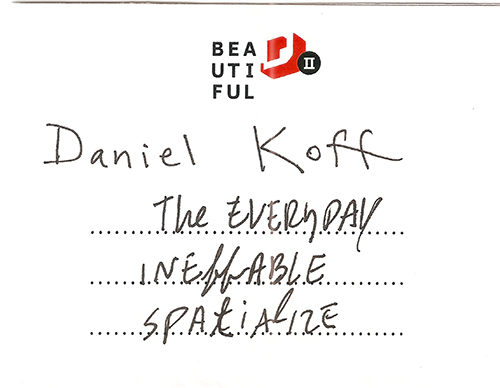 BEA
UTI
FUL
II
Daniel Koff
The EVERYDAY
INEffABLE
SPAtiAlIZE